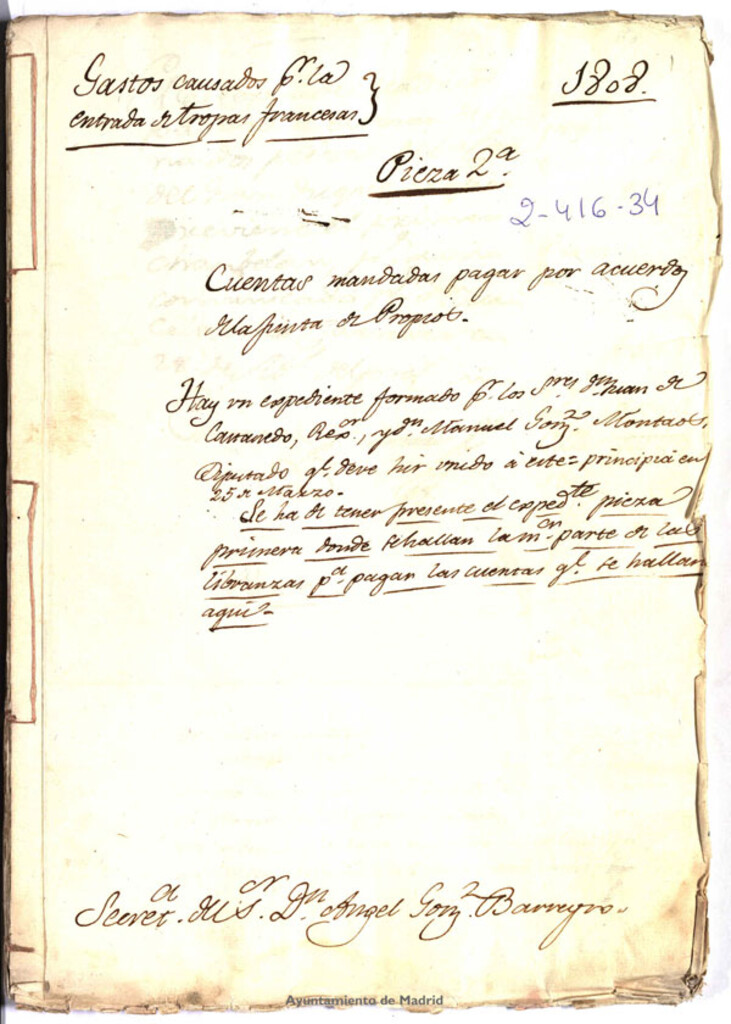 Gastos causados pr. la
entrada de tropas francesas}
1808.
Pieza 2ª
2-416-34
Cuentas mandadas pagar por acuerdo
de la Junta de Propios.
Hay un expediente formado pr. los Sres. dn. Juan de
Castanedo, Rexor., y dn. Manuel Gonz. Montaos.
Diputado qe. deve hir unido à este = principia en
25 de Marzo.
Se ha de tener presente el expedte. pieza
primera donde se hallan la mor. parte de las
libranzas pa. pagar las cuentas qe. se hallan
aqui=
Secreta. del Sor. Dn. Angel Gonz. Barreyro.
Ayuntamiento de Madrid